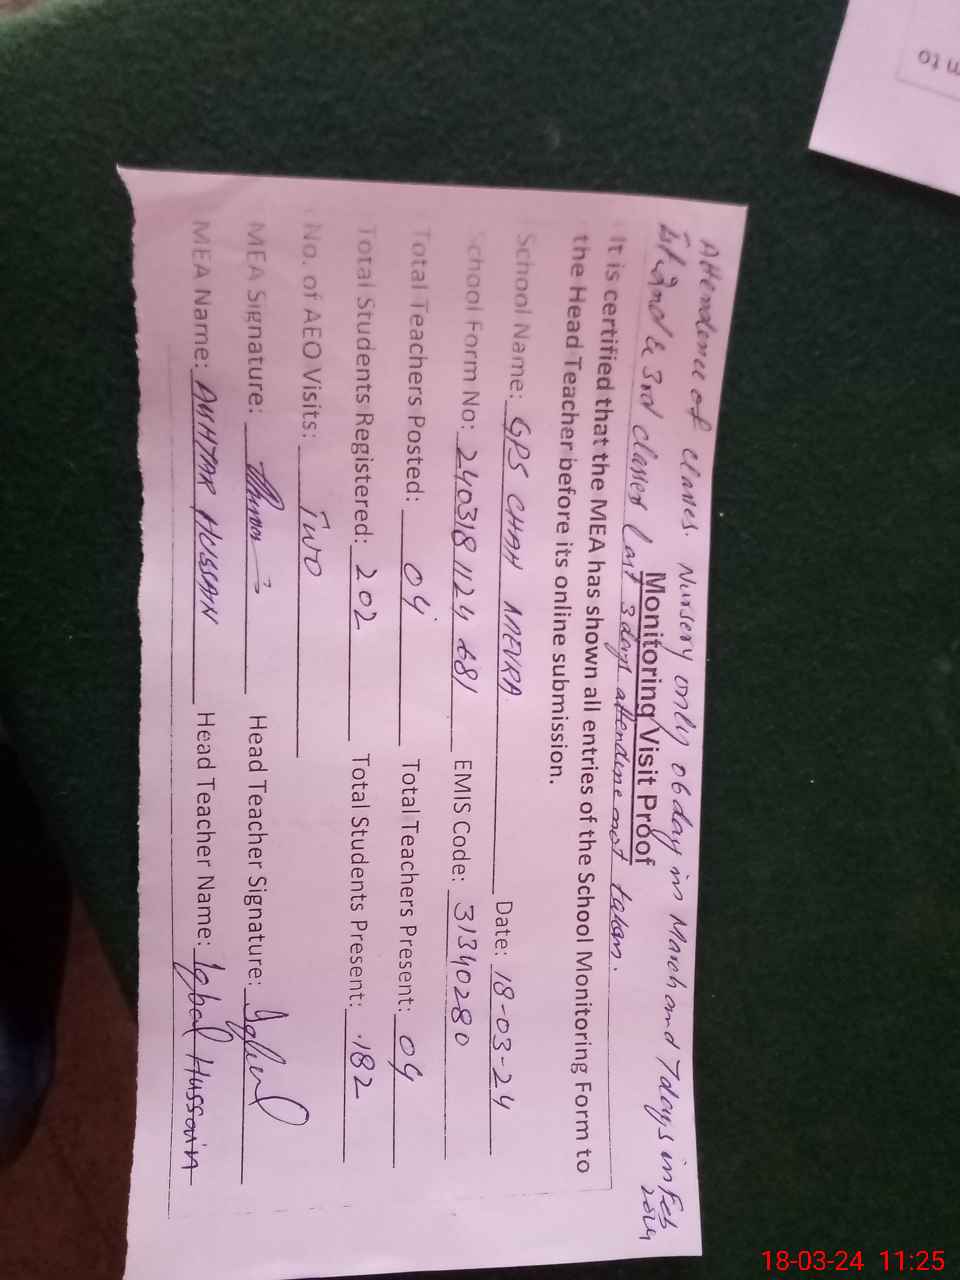 Attendence of Classes. Nursery only 06 day in March and 7 days in Feb 2024
1st, 2nd & 3rd classes last 3 days attendine not taken.
Monitoring Visit Proof
It is certified that the MEA has shown all entries of the School Monitoring Form to
the Head Teacher before its online submission.
School Name: GPS CHAH Date: 18-03-24
School Form No: 240318 1124 681 EMIS Code: 31340280
Total Teachers Posted: 04 Total Teachers Present: 04
Total Students Registered: 202 Total Students Present: 182
No. of AEO Visits: Two
MEA Signature: Head Teacher Signature: Iqbal
MEA Name: HUSSAIN Head Teacher Name: Iqbal Hussain
18-03-24 11:25